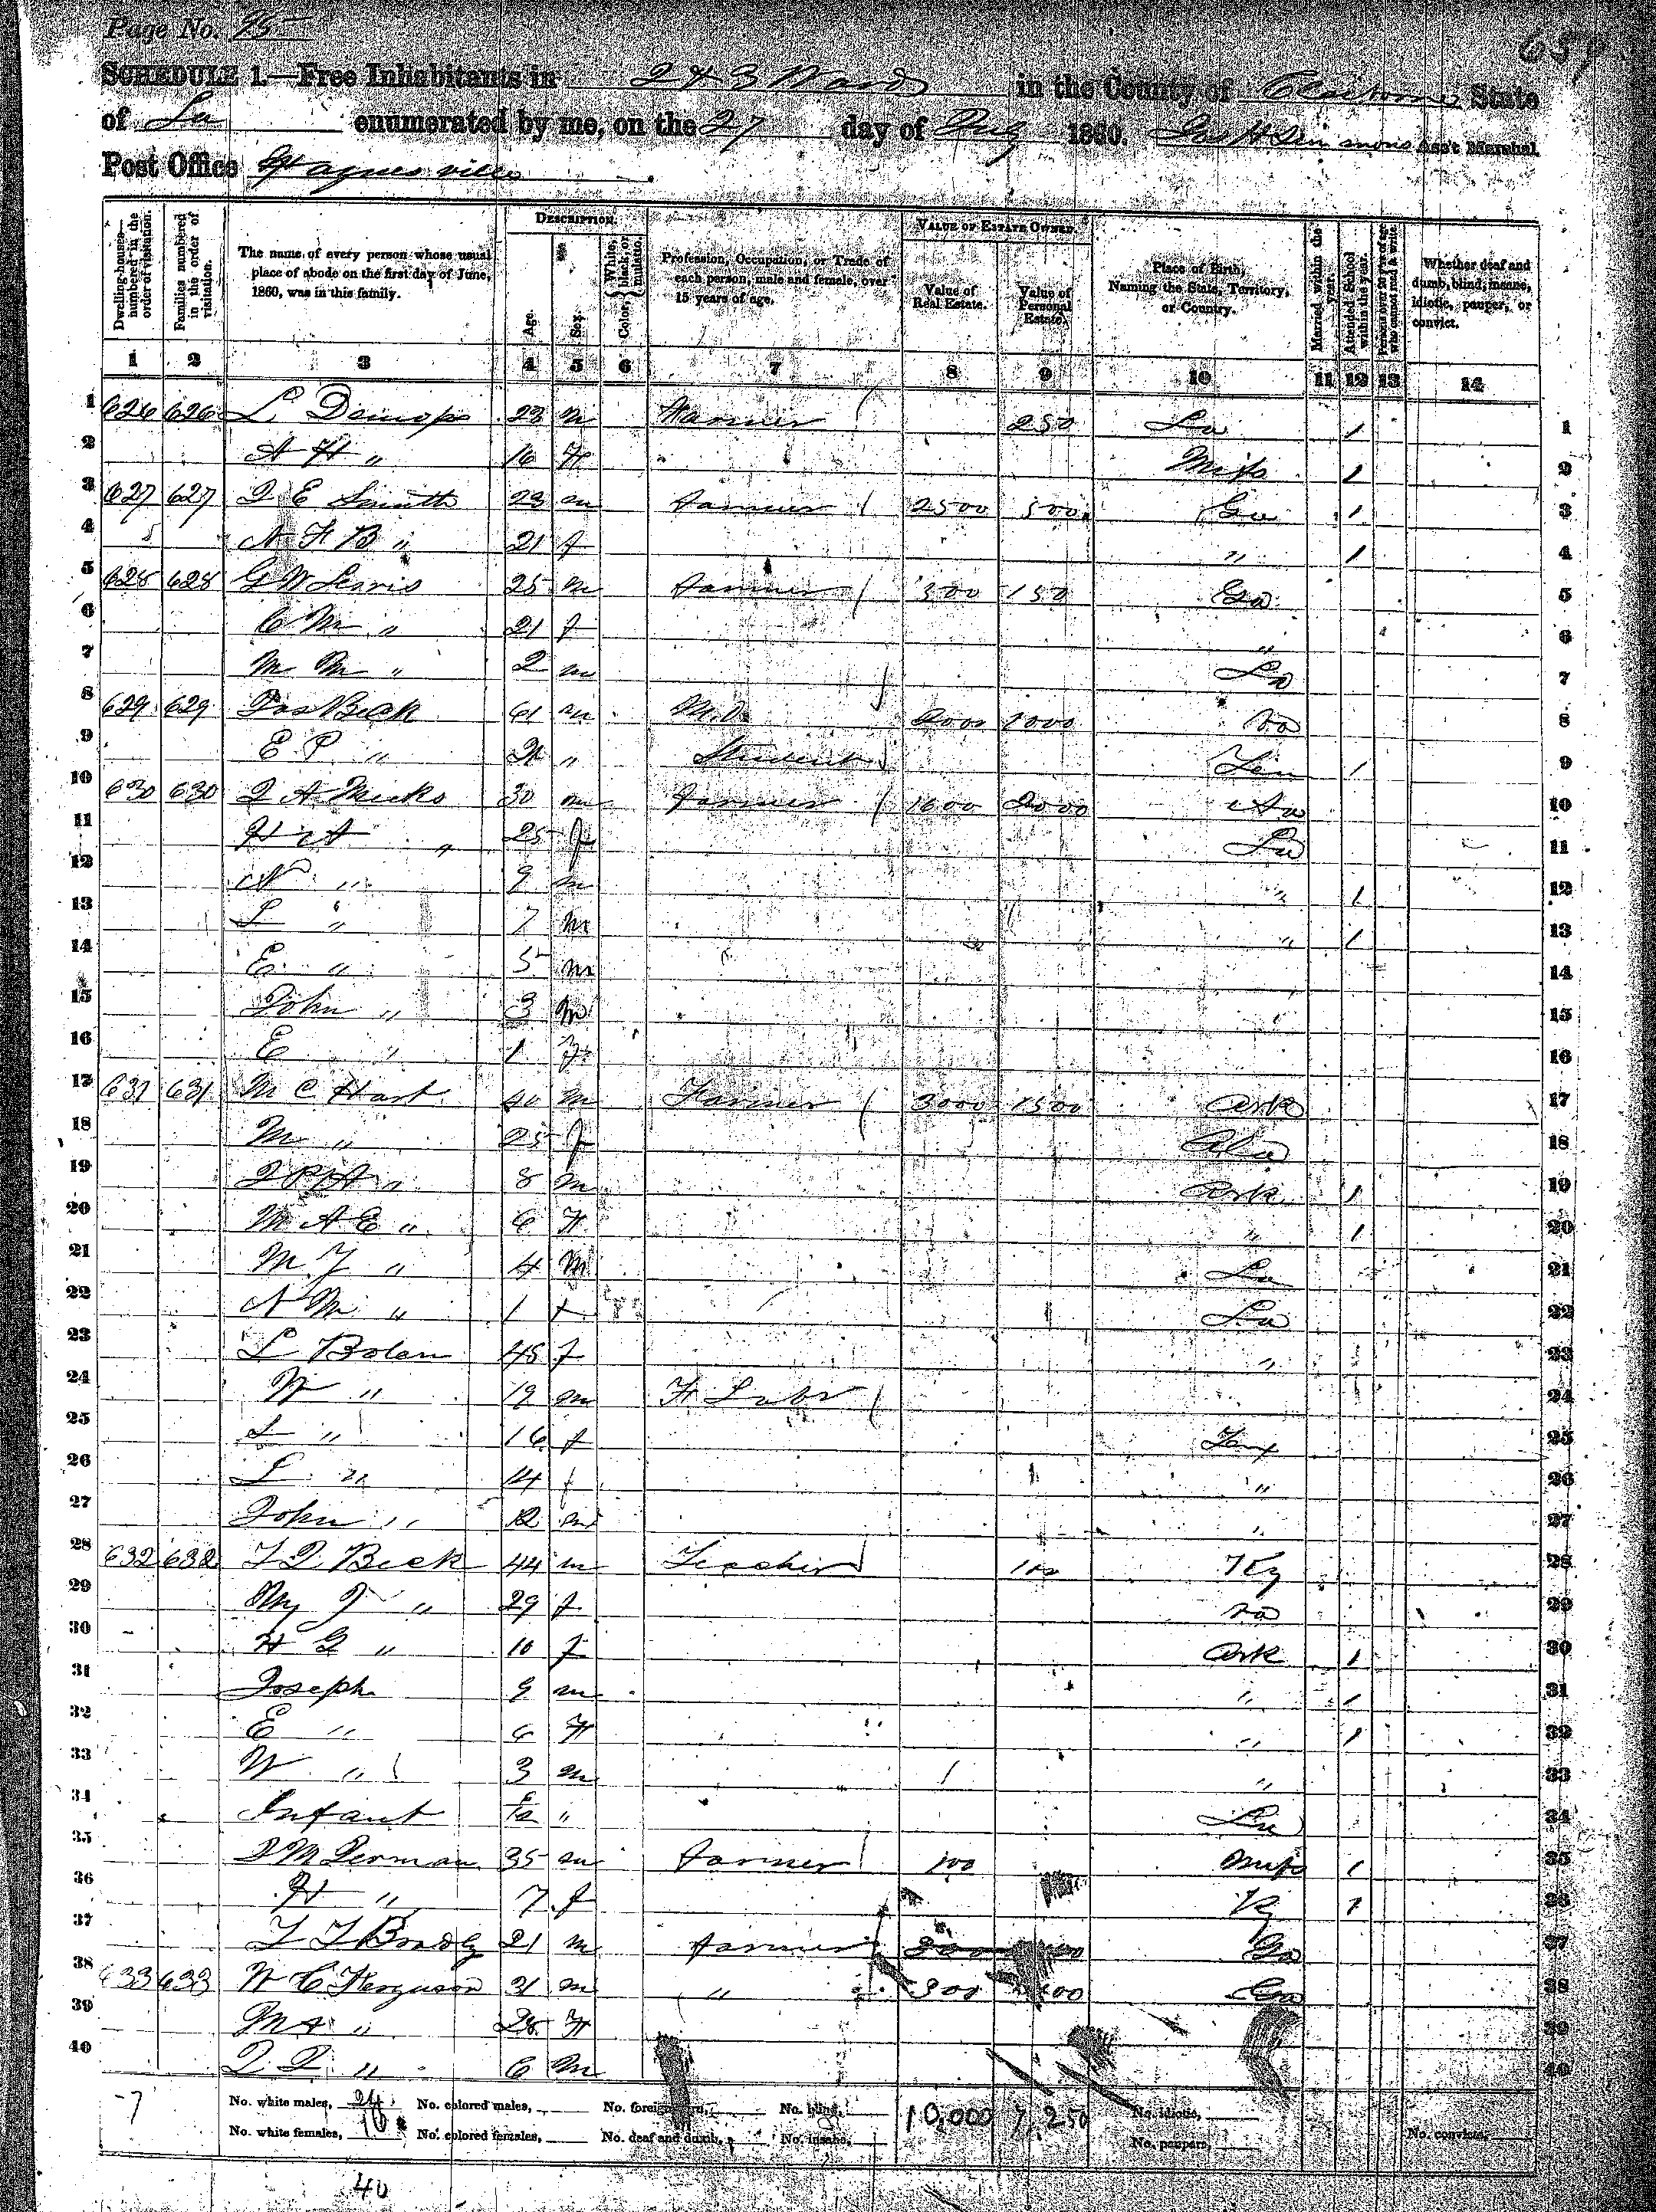 Page No. 95
SCHEDULE 1.—Free Inhabitants in 2 & 3 Wards in the County of Claiborne State
of La enumerated by me, on the 27 day of Aug 1860. Jas H Simmons Ass't Marshal.
Post Office Haynesville
Dwelling-houses—numbered in the order of visitation.
Families numbered in the order of visitation.
The name of every person whose usual place of abode on the first day of June, 1860, was in this family.
DESCRIPTION.
Age.
Sex.
Color, White, black, or mulatto.
Profession, Occupation, or Trade of each person, male and female, over 15 years of age.
VALUE OF ESTATE OWNED.
Value of Real Estate.
Value of Personal Estate.
Place of Birth, Naming the State, Territory, or Country.
Married within the year.
Attended School within the year.
Persons over 20 y'rs of age who cannot read & write.
Whether deaf and dumb, blind, insane, idiotic, pauper, or convict.
1 2 3 4 5 6 7 8 9 10 11 12 13 14
1 626 626 L 23 m Farmer 250 La / 1
2 A H " 16 F Miss / 2
3 627 627 J E Smith 23 m Farmer / 2500 500 Ga / 3
4 N F B " 21 f " / 4
5 628 628 G W Lewis 25 m Farmer / 300 150 Ga 5
6 C M " 21 f " 6
7 M M " 2 m La 7
8 629 629 Jas Beck 61 m M.D. 1000 Va 8
9 E P " 21 " Student Ten / 9
10 630 630 J A Meeks 30 m Farmer / 1600 2000 10
11 H A " 25 f La 11
12 N " 9 m " / 12
13 L " 7 m " / 13
14 E " 5 m 14
15 John " 3 m 15
16 E " 1 f 16
17 631 631 M C Hart 40 m Farmer / 3000 1500 Ark 17
18 M " 25 f Ala 18
19 " 8 m Ark / 19
20 M A E " 6 F " / 20
21 M J " 4 M La 21
22 N M " 1 f La 22
23 L Bolen 45 f " 23
24 W " 19 m F Labr / 24
25 L " 16 f 25
26 L " 14 f " 26
27 John " 12 m " 27
28 632 632 J J Beck 44 m Teacher 100 Ky 28
29 " 29 f Va 29
30 H G " 10 f Ark / 30
31 Joseph 9 m " / 31
32 E " 6 F " / 32
33 W " 3 m " 33
34 Infant " La 34
35 35 m Farmer 100 Miss / 35
36 H " 7 f Ky 1 36
37 21 m Farmer Ga 37
38 633 633 W C Ferguson 31 m " 300 Ga 38
39 " 28 F 39
40 J J " 6 M 40
-7
No. white males, 24 No. colored males, No. foreign born, No. blind, 10,000 7,250 No. idiotic,
No. white females, 16 No. colored females, No. deaf and dumb, No. insane, No. paupers, No. convicts,
40